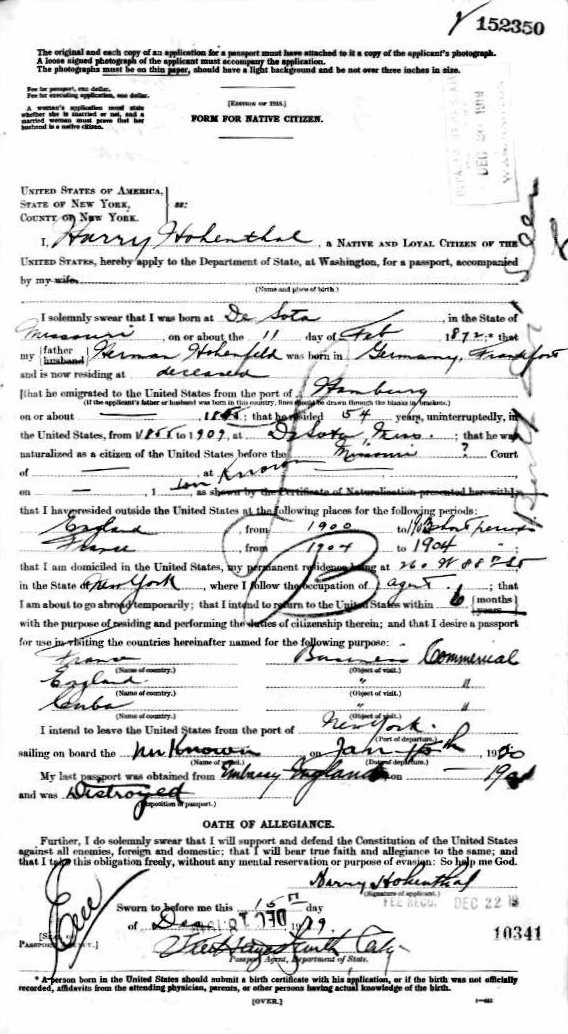 152350
The original and each copy of an application for a passport must have attached to it a copy of the applicant's photograph.
A loose signed photograph of the applicant must accompany the application.
The photographs must be on thin paper, should have a light background and be not over three inches in size.
Fee for passport, one dollar.
Fee for executing application, one dollar.
A woman's application must state
whether she is married or not, and a
married woman must prove that her
husband is a native citizen.
[EDITION OF 1918.]
FORM FOR NATIVE CITIZEN.
DEC 20 1919
UNITED STATES OF AMERICA,
STATE OF NEW YORK,
COUNTY OF NEW YORK.
ss:
I, Harry Hohenthal, a NATIVE AND LOYAL CITIZEN OF THE
UNITED STATES, hereby apply to the Department of State, at Washington, for a passport, accompanied
by my wife,
(Name and place of birth.)
I solemnly swear that I was born at De Sota, in the State of
Missouri, on or about the 11 day of Feb 1872.* that
my {father husband} Herman Hohenfeld was born in Germany, Frankfort
and is now residing at deceased
[that he emigrated to the United States from the port of Hamburg
(If the applicant's father or husband was born in this country, lines should be drawn through the blanks in brackets.)
on or about — 1855; that he resided 54 years, uninterruptedly, in
the United States, from 1855 to 1909, at De Sota, Miss.; that he was
naturalized as a citizen of the United States before the Missouri ? Court
of — at —
on — 1 , as shown by the Certificate of Naturalization presented herewith;
that I have resided outside the United States at the following places for the following periods:
England, from 1900 to short periods
France, from 1904 to 1904 "
that I am domiciled in the United States, my permanent residence being at 260 W 88th St
in the State of New York, where I follow the occupation of agent; that
I am about to go abroad temporarily; that I intend to return to the United States within 6 {months years}
with the purpose of residing and performing the duties of citizenship therein; and that I desire a passport
for use in visiting the countries hereinafter named for the following purpose:
France Business Commercial
(Name of country.) (Object of visit.)
England " "
(Name of country.) (Object of visit.)
Cuba " "
(Name of country.) (Object of visit.)
I intend to leave the United States from the port of New York.
(Port of departure.)
sailing on board the unknown on Jan 15th 1920
(Name of vessel.) (Date of departure.)
My last passport was obtained from Embassy England on — 19
and was Destroyed
(Disposition of passport.)
B
OATH OF ALLEGIANCE.
Further, I do solemnly swear that I will support and defend the Constitution of the United States
against all enemies, foreign and domestic; that I will bear true faith and allegiance to the same; and
that I take this obligation freely, without any mental reservation or purpose of evasion: So help me God.
Harry Hohenthal
(Signature of applicant.)
FEE RECD. DEC 22 19
Sworn to before me this 15th day
of Dec 1919.
10341
Passport Agent, Department of State.
* A person born in the United States should submit a birth certificate with his application, or if the birth was not officially
recorded, affidavits from the attending physician, parents, or other persons having actual knowledge of the birth.
[OVER.]